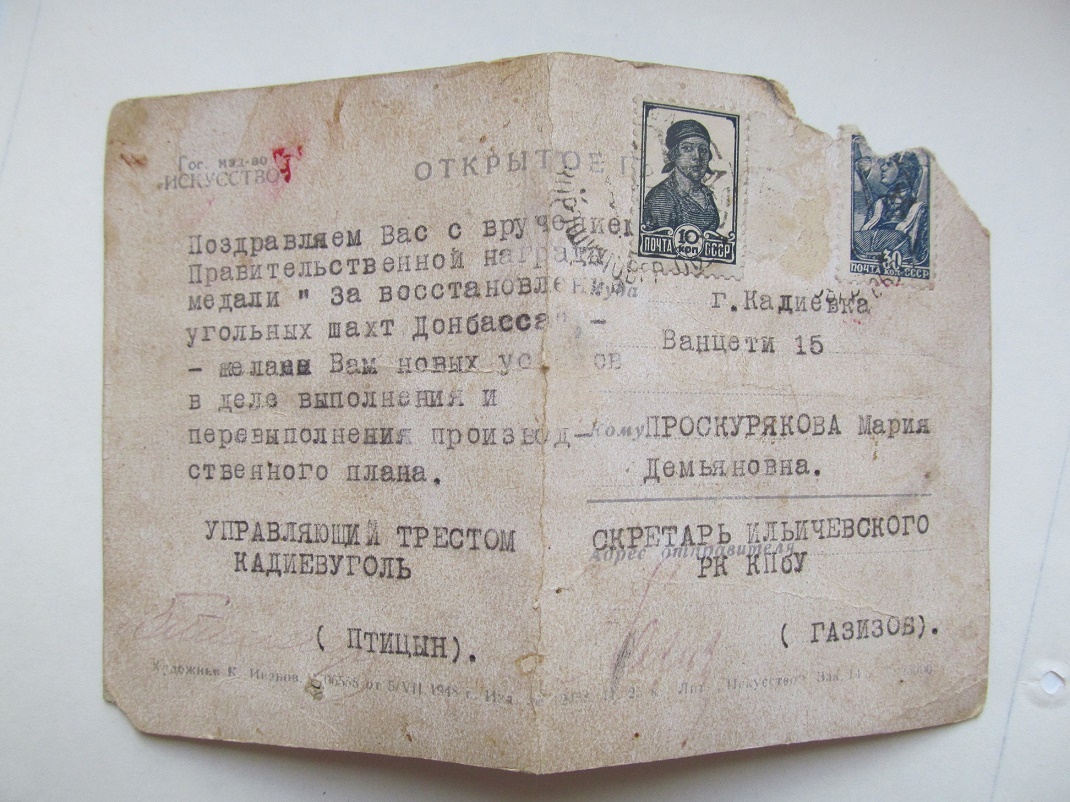 Гос. изд-во
ИСКУССТВО
ОТКРЫТОЕ П
10
КОП
ПОЧТА СССР
30
ПОЧТА КОП СССР
Поздравляем Вас с вручением
Правительственной награды
медали " За восстановление
угольных шахт Донбасса", -
- желаем Вам новых ус ов
в деле выполнения и
перевыполнения производ-
ственного плана.
УПРАВЛЯЮЩИЙ ТРЕСТОМ
КАДИЕВУГОЛЬ
( ПТИЦЫН).
Куда
г.Кадиевка
Ванцети 15
Кому ПРОСКУРЯКОВА Мария
Демьяновна.
СКРЕТАРЬ ИЛЬИЧЕВСКОГО
Адрес отправителя
РК КПбУ
( ГАЗИЗОВ).
Художник К. Иванов. 06538 от 5/VII 1948 г. Лит. "Искусство" Зак.